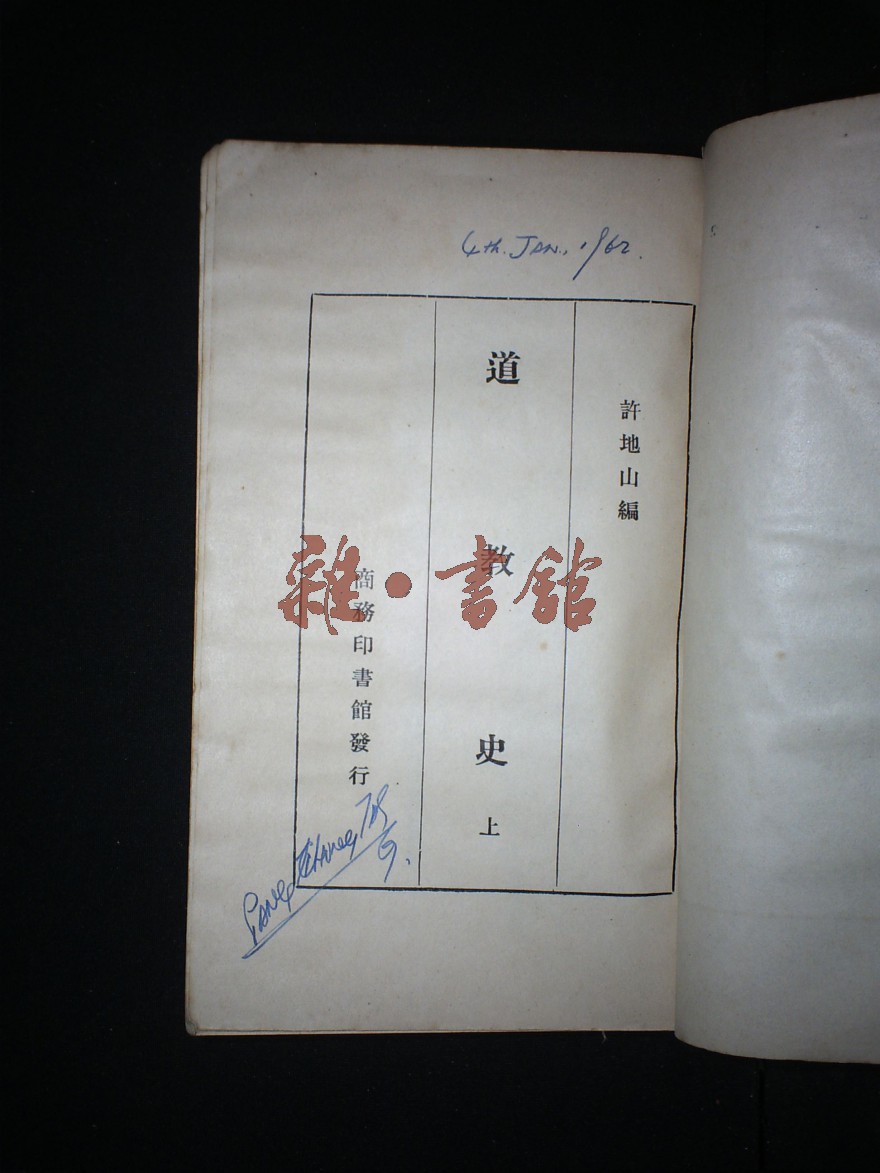 4th. JAN., 1962.
許地山編
道教史 上
商務印書館發行
雜·書館